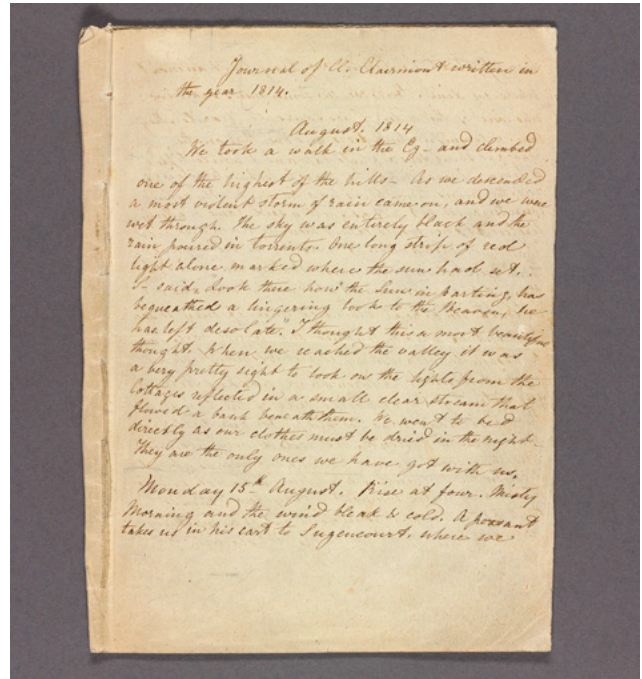 Journal of C. Clairmont written in
the year 1814.
August. 1814
We took a walk in the Eg- and climbed
one of the highest of the hills- As we descended
a most violent storm of rain came on, and we were
wet through. The sky was entirely black and the
rain poured in torrents. One long stripe of red
light alone, marked where the sun had set.
I- said, Look there how the Sun in parting, has
bequeathed a lingering look to the Heaven, he
has left desolate". I thought this a most beautiful
thought. When we reached the valley it was
a very pretty sight to look on the lights from the
Cottages reflected in a small clear stream that
flowed a bank beneath them. We went to bed
directly as our clothes must be dried in the night-
They are the only ones we have got with us.
Monday 15th August. Rise at four. Misty
Morning and the wind bleak & cold. A peasant
takes us in his cart to where we